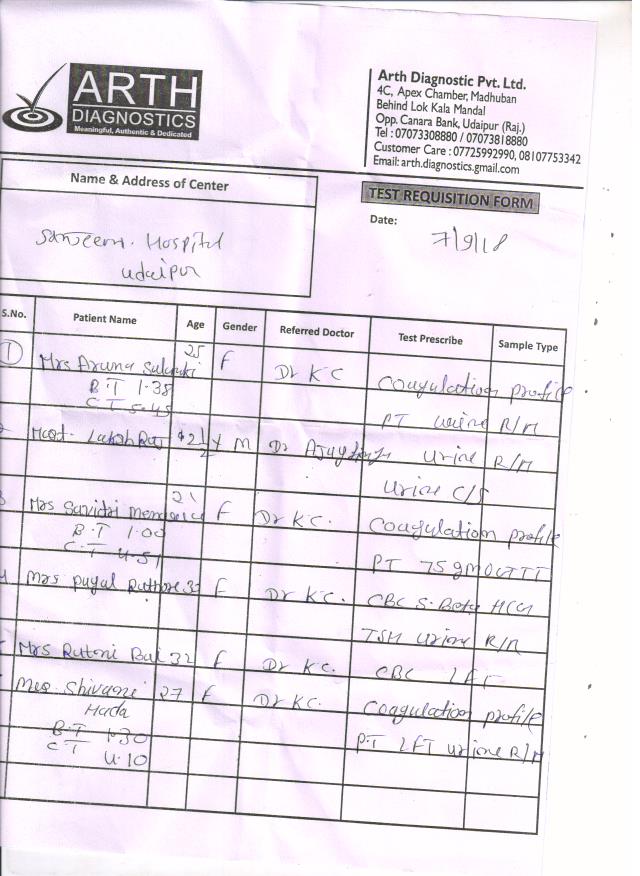 ARTH
DIAGNOSTICS
Meaningful, Authentic & Dedicated
Arth Diagnostic Pvt. Ltd.
4C, Apex Chamber, Madhuban
Behind Lok Kala Mandal
Opp. Canara Bank, Udaipur (Raj.)
Tel : 07073308880 / 07073818880
Customer Care : 07725992990, 08107753342
Email: arth.diagnostics.gmail.com
Name & Address of Center
TEST REQUISITION FORM
Date:
7/9/18
Hospital
Udaipur
S.No. Patient Name Age Gender Referred Doctor Test Prescribe Sample Type
1 Mrs Aruna 25 F Dr KC Coagulation profile
B.T 1.35
C.T 5.45 PT urine R/M
2 1/2 Y M Dr Ajay urine R/M
urine C/S
Mrs Savitri 21 F Dr KC. Coagulation profile
B.T 1.00
C.T 4.51 PT 75 gm OGTTT
Mrs Payal Rathore 32 F Dr KC. CBC S. Beta HCG
TSH urine R/M
Mrs Ratoni Bai 32 F Dr KC. CBC LFT
Shivani 27 F Dr KC. Coagulation profile
Hada
B.T 1.30 P.T LFT urine R/M
C T 4.10